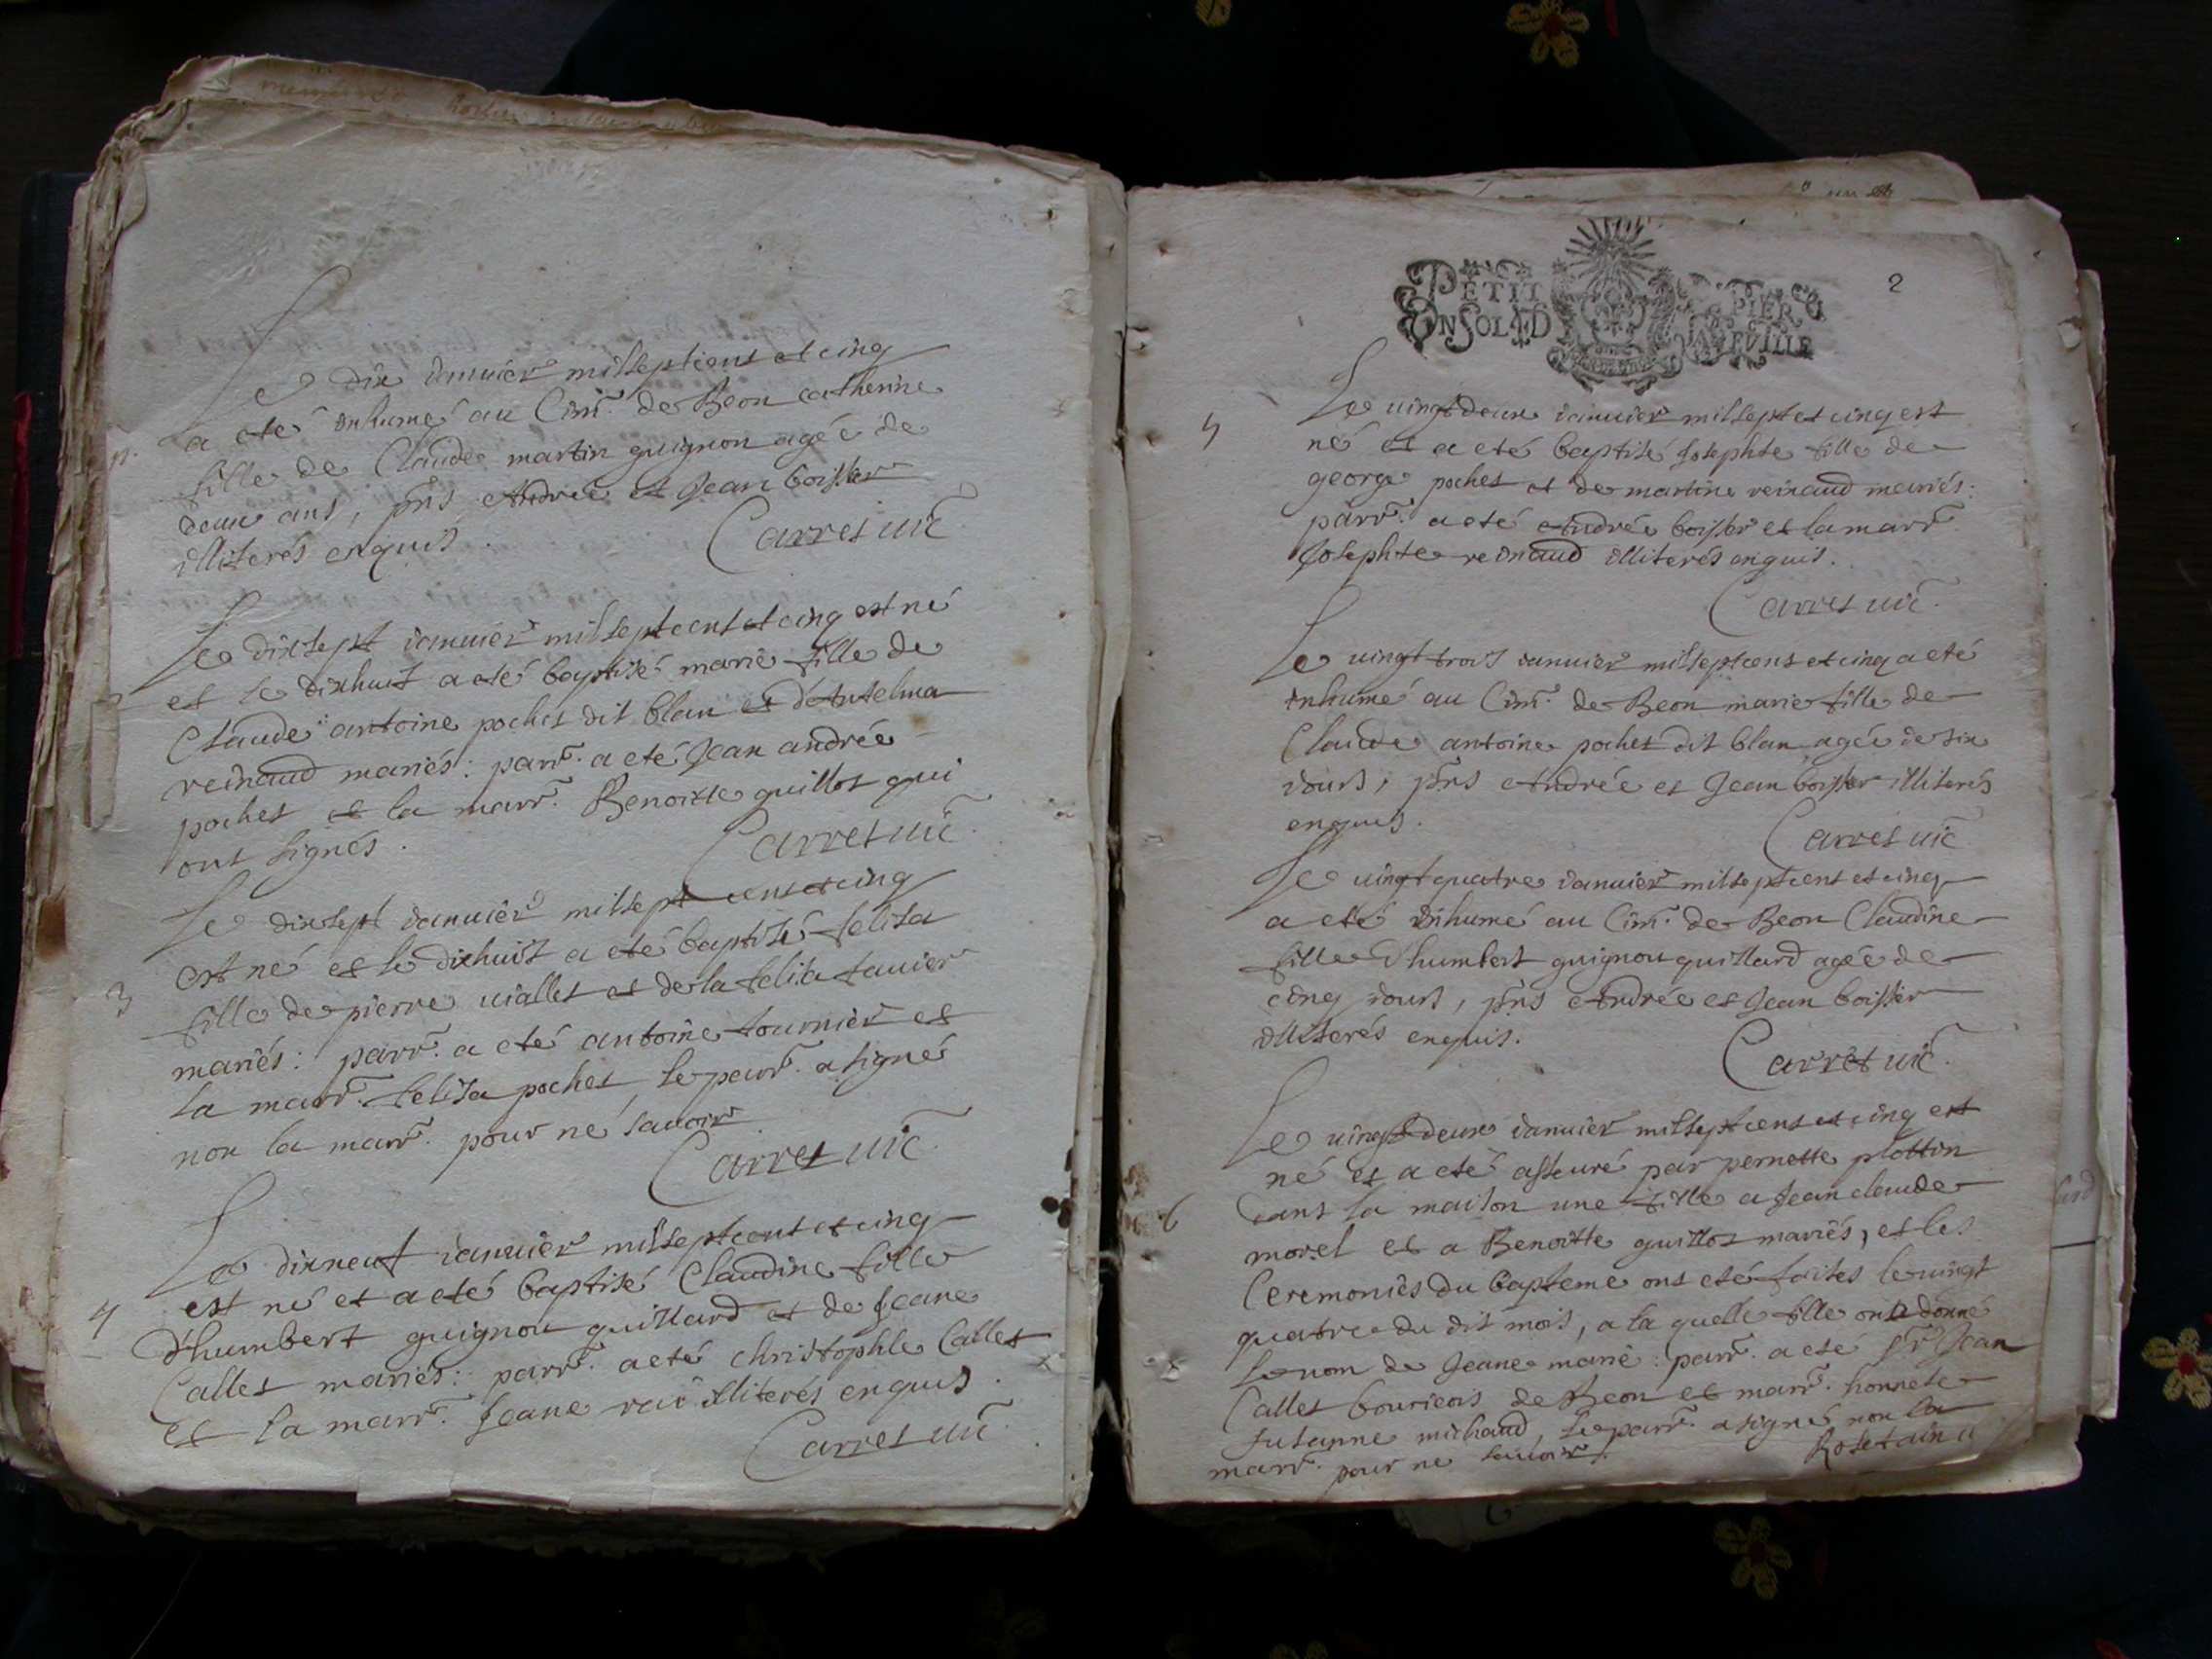 Le dix ianuier mil sept cens et cinq
a eté inhumé au Cim. de Beon catherine
fille de Claude martin guignon agée de
deux ans, pns Andrée et Jean boisser
illiterés enquis.
Carret uic
Le dixsept ianuier mil sept cens et cinq est né
et le dixhuit a eté baptisé marie fille de
Claude antoine pochet dit blan et d'Antelma
reinaud mariés: parr. a eté Jean andrée
pochet et la marr. Benoitte guillot qui
ont signés.
Carret uic.
Le dixsept ianuier mil sept cens et cinq
3
est né et le dixhuit a eté baptisé felisa
fille de pierre uiallet et de la felisa tauier
mariés: parr. a eté antoine tournier et
la marr. felisa pochet, le parr. a signé
non la marr. pour né sauoir
Carret uic.
Le dixneuf ianuier mil sept cens et cinq
4
est né et a eté baptisé Claudine fille
d'humbert guignon guillard et de Jeane
Callet mariés: parr. a eté christophle Callet
et la marr. Jeane illiterés enquis.
Carret uic.
2
PETIT PAPIER
UN SOL LA FEUILLE
5
Le uingt deux ianuier mil sept et cinq est
né et a eté baptisé Josephte fille de
george pochet et de martine reinaud mariés:
parr. a eté Andrée boisser et la marr.
Josephte reinaud illiterés enquis.
Carret uic.
Le uingt trois ianuier mil sept cens et cinq a eté
inhumé au Cim. de Beon marie fille de
Claude antoine pochet dit blan agée de six
iours, pns Andrée et Jean boisser illiterés
enquis.
Carret uic
Le uingt quatre ianuier mil sept cens et cinq
a eté inhumé au Cim. de Beon Claudine
fille d'humbert guignon guillard agée de
cinq iours, pns Andrée et Jean boisser
illiterés enquis.
Carret uic.
Le uingt deux ianuier mil sept cens et cinq est
né et a eté asseuré par pernette plottin
6
dans la maison une fille a Jean claude
morel et a Benoitte guillot mariés, et les
Ceremonies du bapteme ont eté faites le uingt
quatre du dit mois, a la quelle fille on a donné
le nom de Jeane marie: parr. a eté Sr Jean
Callet bourieois de Beon et marr. honnete
susanne michaud, le parr. a signé non la
marr. pour ne sauoir.